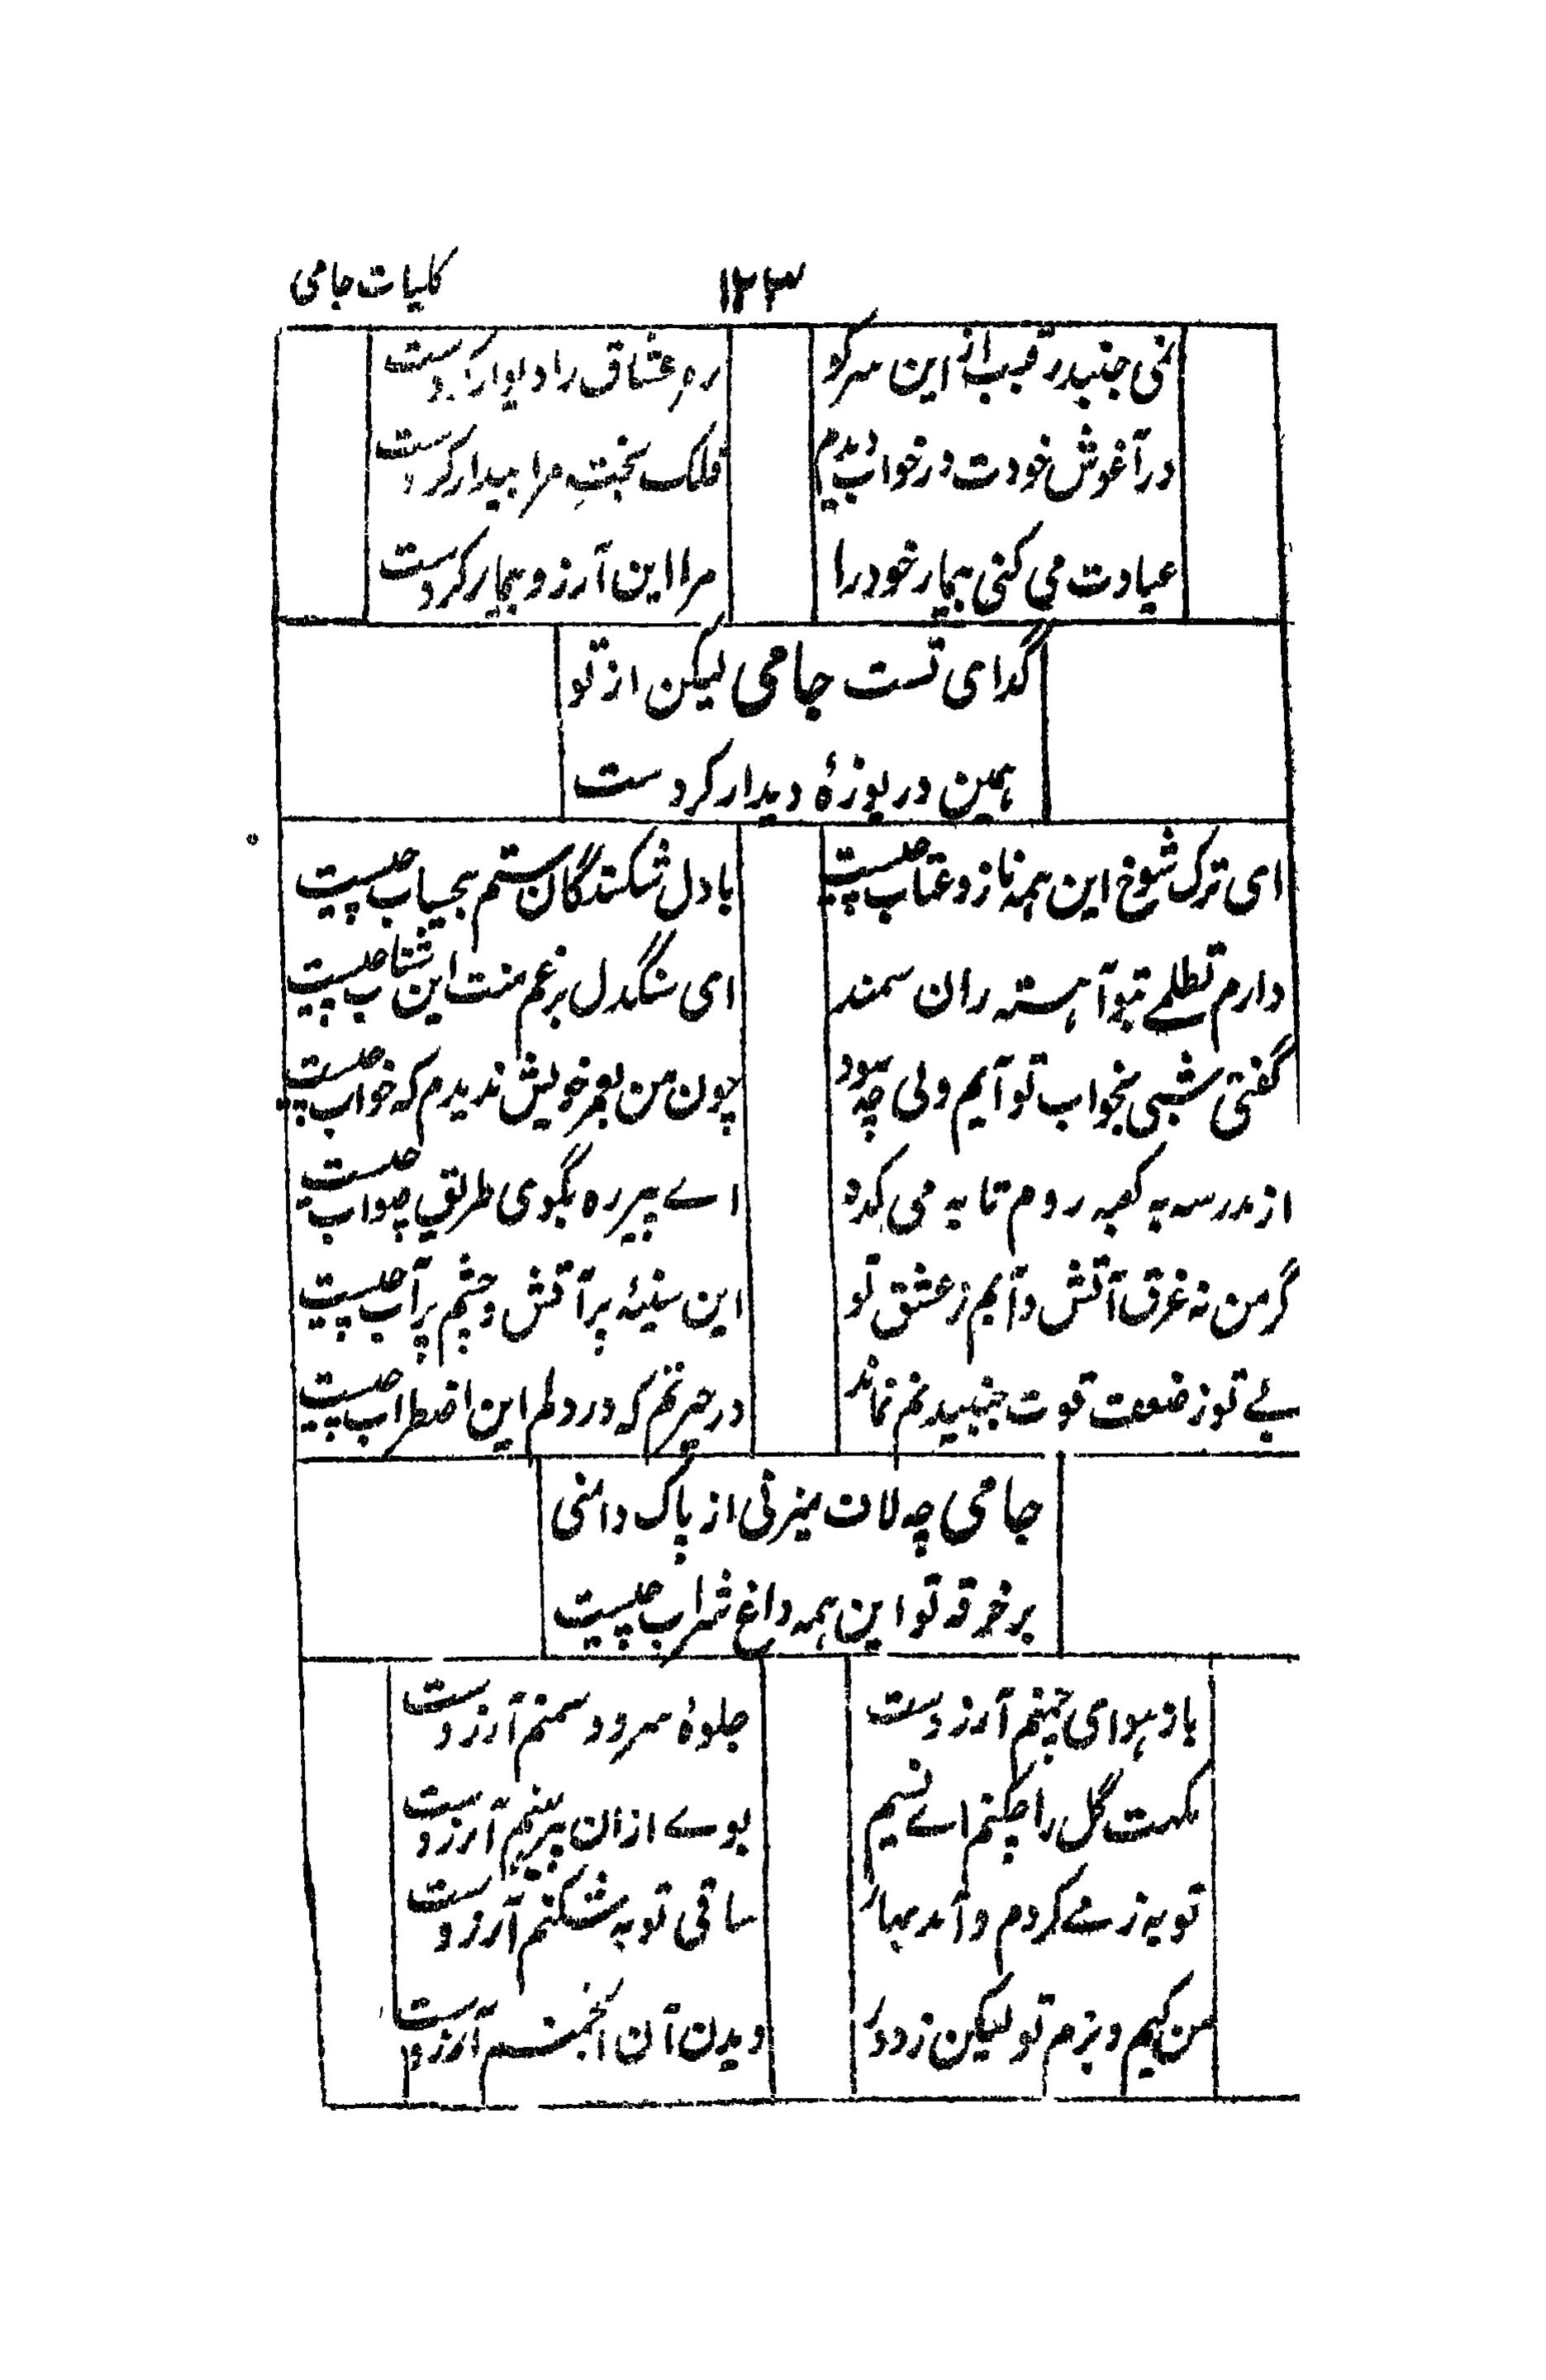 کلیات جامی
۱۲۳
نمی جنبد رقیب از این سر کو
ره عشاق را دیوار کردست
در آغوش خودت در خواب دیدم
فلک بختِ مرا بیدار کردست
عیادت می کنی بیمار خود را
مرا این آرزو بیمار کردست
گدای تست جامی لیکن از تو
همین دریوزهٔ دیدار کردست
ای ترک شوخ این همه ناز و عتاب چیست
با دل شکستگان ستم بیحساب چیست
دارم تظلمے بتو آهسته ران سمند
ای سنگدل برغم منت این شتاب چیست
گفتی شبی بخواب تو آیم ولی چه سود
چون من بعمر خویش ندیدم که خواب چیست
از مدرسه به کعبه روم تا به می کده
اے پیر ره بگوی طریقِ صواب چیست
گر من نه غرق آتش و آبم ز عشق تو
این سینهٔ پر آتش و چشم پر آب چیست
بے تو ز ضعف قوت جنبیدنم نماند
در حیرتم که در دلم این اضطراب چیست
جامی چه لاف میزنی از پاک دامنی
بر خرقه تو این همه داغ شراب چیست
باد هوای چمنم آرزوست
جلوهٔ سرو و سمنم آرزوست
نکهت گل را چکنم اے نسیم
بوے ازان پیرهنم آرزوست
توبه ز مے کردم و آمد بهار
ساقی توبه شکنم آرزوست
من کیم و بزم تو لیکن ز دور
دیدن آن انجمنم آرزوست